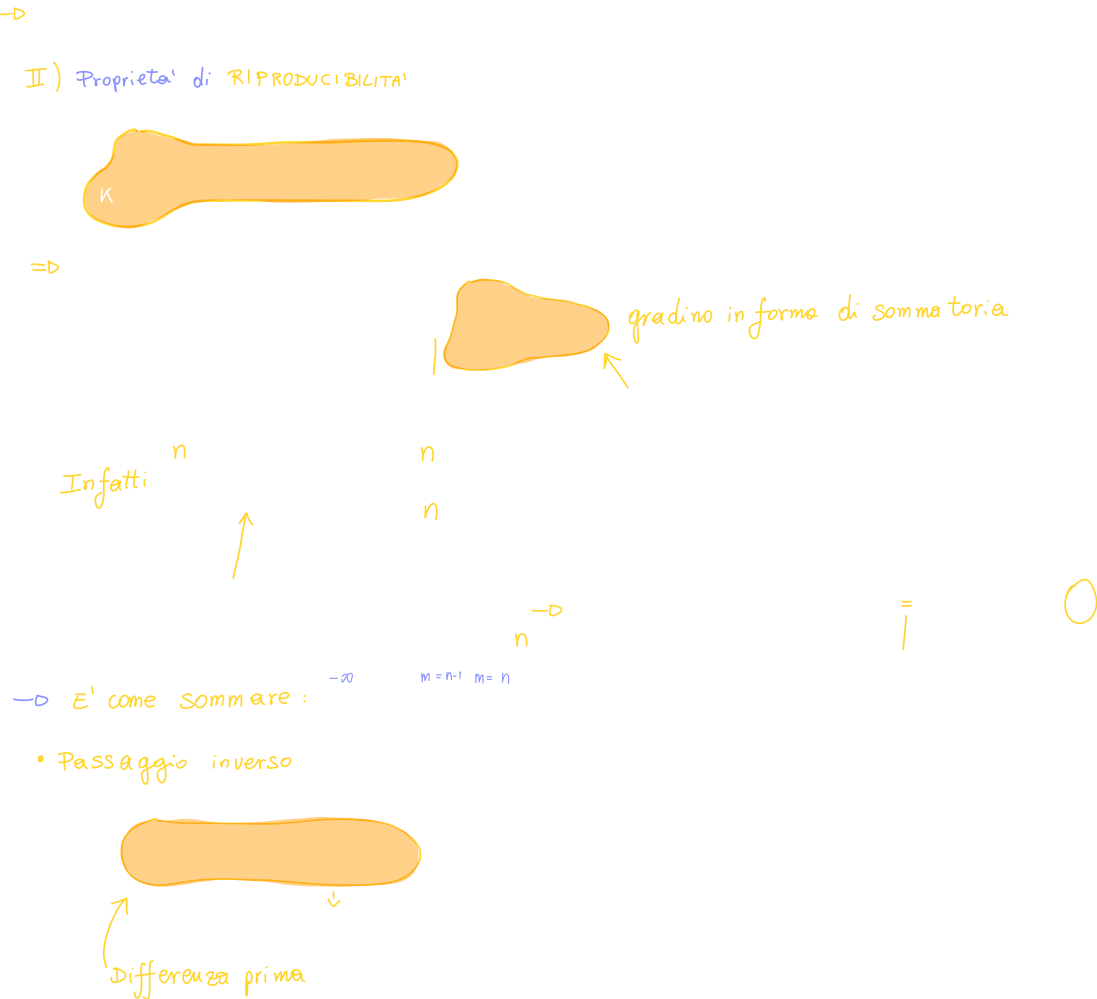 II) Proprieta' di RIPRODUCIBILITA'
K
=D
gradino in forma di sommatoria
n n
Infatti
n
n
=
-∞ m = n-1 m = n
E' come sommare :
• Passaggio inverso
Differenza prima